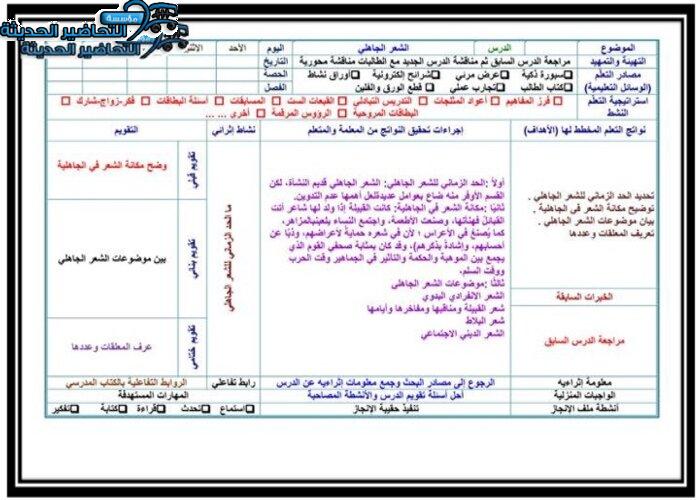 مؤسسة
التحاضير الحديثة
الموضوع الدرس الشعر الجاهلي اليوم الأحد الاثنين
التهيئة والتمهيد مراجعة الدرس السابق ثم مناقشة الدرس الجديد مع الطالبات مناقشة محورية التاريخ
مصادر التعلم سبورة ذكية عرض مرئي شرائح إلكترونية أوراق نشاط الحصة
(الوسائل التعليمية) كتاب الطالب تجارب عملي قطع الورق والفلين الفصل
استراتيجية التعلم فرز المفاهيم أعواد المثلجات التدريس التبادلي القبعات الست المسابقات أسئلة البطاقات فكر-زواج-شارك
النشط البطاقات المروحية الرؤوس المرقمة أخرى ... ...
نواتج التعلم المخطط لها (الأهداف) إجراءات تحقيق النواتج من المعلمة والمتعلم نشاط إثرائي التقويم
تحديد الحد الزماني للشعر الجاهلي .
توضيح مكانة الشعر في الجاهلية .
بيان موضوعات الشعر الجاهلي
تعريف المعلقات وعددها
الخبرات السابقة
مراجعة الدرس السابق
أولاً :الحد الزماني للشعر الجاهلي: الشعر الجاهلي قديم النشأة، لكن
القسم الأوفر منه ضاع بعوامل عديدةلعل أهمها عدم التدوين.
ثانيًا :مكانة الشعر في الجاهلية: كانت القبيلة إذا ولد لها شاعر أتت
القبائل فهنأتها، وصنعت الأطعمة، واجتمع النساء يلعبنبالمزاهر،
كما يُصنع في الأعراس ؛ لأن في شعره حماية لأعراضهم، وذبًا عن
أحسابهم، وإشادة بذكرهم)، وقد كان بمثابة صحفي القوم الذي
يجمع بين الموهبة والحكمة والتأثير في الجماهير وقت الحرب
ووقت السلم،
ثالثًا :موضوعات الشعر الجاهلي
الشعر الانفرادي البدوي
شعر القبيلة ومناقبها ومفاخرها وأيامها
شعر البلاط
الشعر الديني الاجتماعي
ما الحد الزماني للشعر الجاهلي
تقويم قبلي
وضح مكانة الشعر في الجاهلية
تقويم بنائي
بين موضوعات الشعر الجاهلي
تقويم ختامي
عرف المعلقات وعددها
معلومة إثرائيه الرجوع إلى مصادر البحث وجمع معلومات إثرائيه عن الدرس رابط تفاعلي الروابط التفاعلية بالكتاب المدرسي
الواجبات المنزلية أحل أسئلة تقويم الدرس والأنشطة المصاحبة المهارات المستهدفة
أنشطة ملف الإنجاز تنفيذ حقيبة الإنجاز استماع تحدث قراءة كتابة تفكير